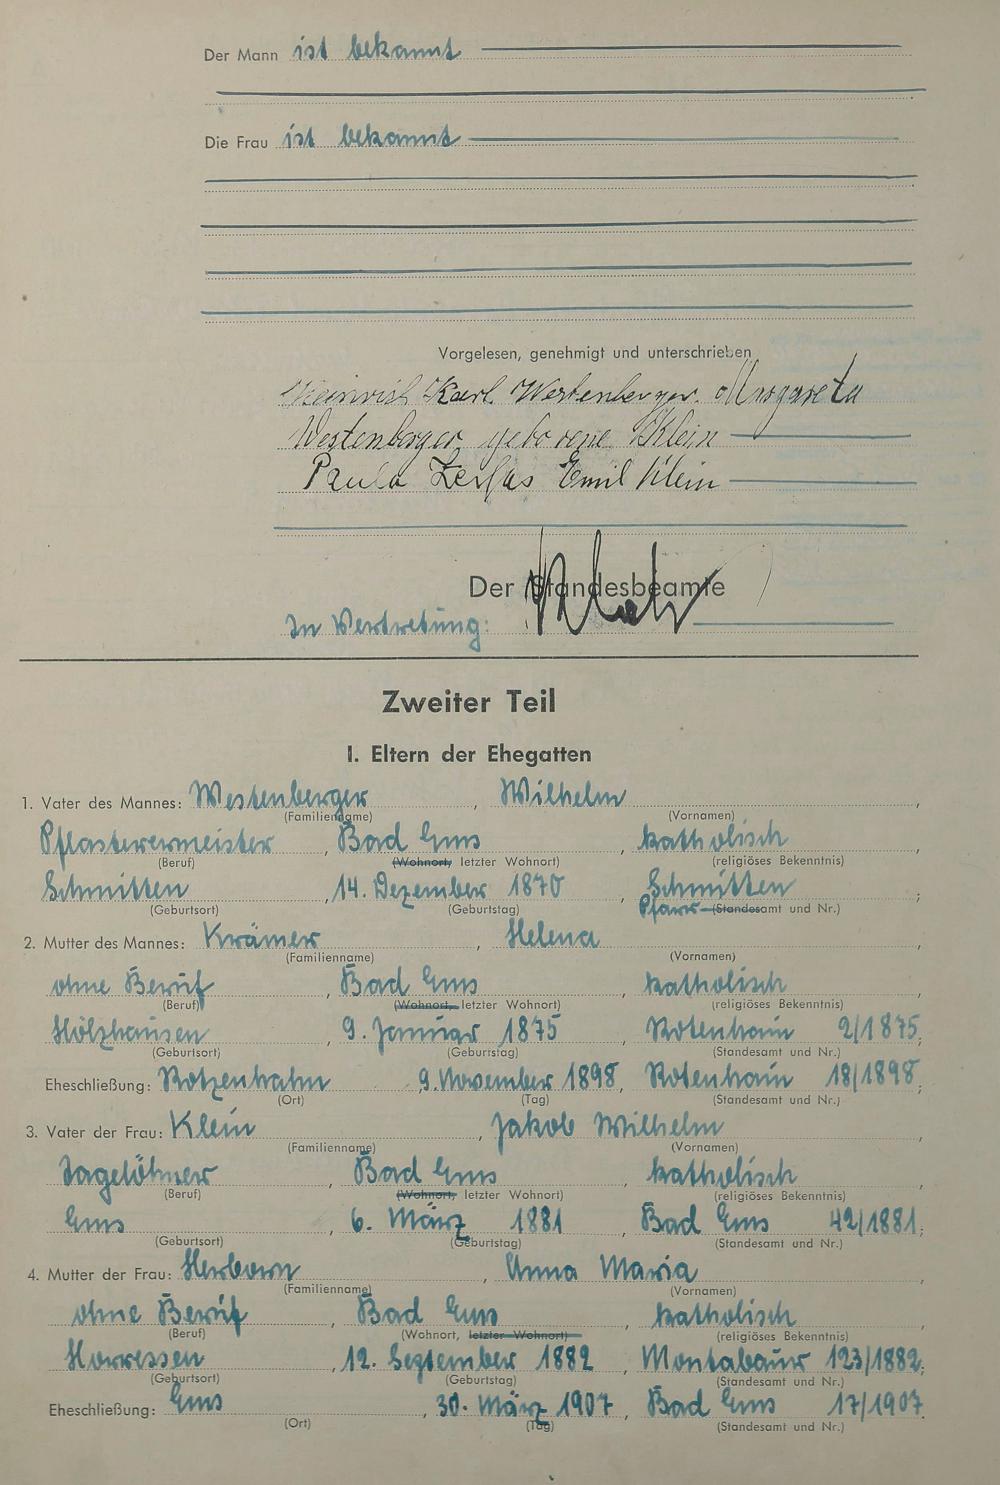 Der Mann ist bekannt
Die Frau ist bekannt
Vorgelesen, genehmigt und unterschrieben
Heinrich Karl Westenberger. Margareta
Westenberger geborene Klein
Paula Zerfas Emil Klein
Der Standesbeamte
In Vertretung:
Zweiter Teil
I. Eltern der Ehegatten
1. Vater des Mannes: Westenberger, Wilhelm,
(Familienname) (Vornamen)
Pflasterermeister, Bad Ems, katholisch
(Beruf) (Wohnort, letzter Wohnort) (religiöses Bekenntnis)
Schmitten, 14. Dezember 1870, Schmitten;
(Geburtsort) (Geburtstag) Pfarr-(Standesamt und Nr.)
2. Mutter des Mannes: Krämer, Helena,
(Familienname) (Vornamen)
ohne Beruf, Bad Ems, katholisch,
(Beruf) (Wohnort, letzter Wohnort) (religiöses Bekenntnis)
Hölzhausen, 9. Januar 1875, Rotenhain 2/1875;
(Geburtsort) (Geburtstag) (Standesamt und Nr.)
Eheschließung: Rotzenhahn, 9. November 1898, Rotenhain 18/1898;
(Ort) (Tag) (Standesamt und Nr.)
3. Vater der Frau: Klein, Jakob Wilhelm,
(Familienname) (Vornamen)
Tagelöhner, Bad Ems, katholisch,
(Beruf) (Wohnort, letzter Wohnort) (religiöses Bekenntnis)
Ems, 6. März 1881, Bad Ems 42/1881;
(Geburtsort) (Geburtstag) (Standesamt und Nr.)
4. Mutter der Frau: Herborn, Anna Maria,
(Familienname) (Vornamen)
ohne Beruf, Bad Ems, katholisch,
(Beruf) (Wohnort, letzter Wohnort) (religiöses Bekenntnis)
Horressen, 12. September 1882, Montabaur 123/1882;
(Geburtsort) (Geburtstag) (Standesamt und Nr.)
Eheschließung: Ems, 30. März 1907, Bad Ems 17/1907.
(Ort) (Tag) (Standesamt und Nr.)